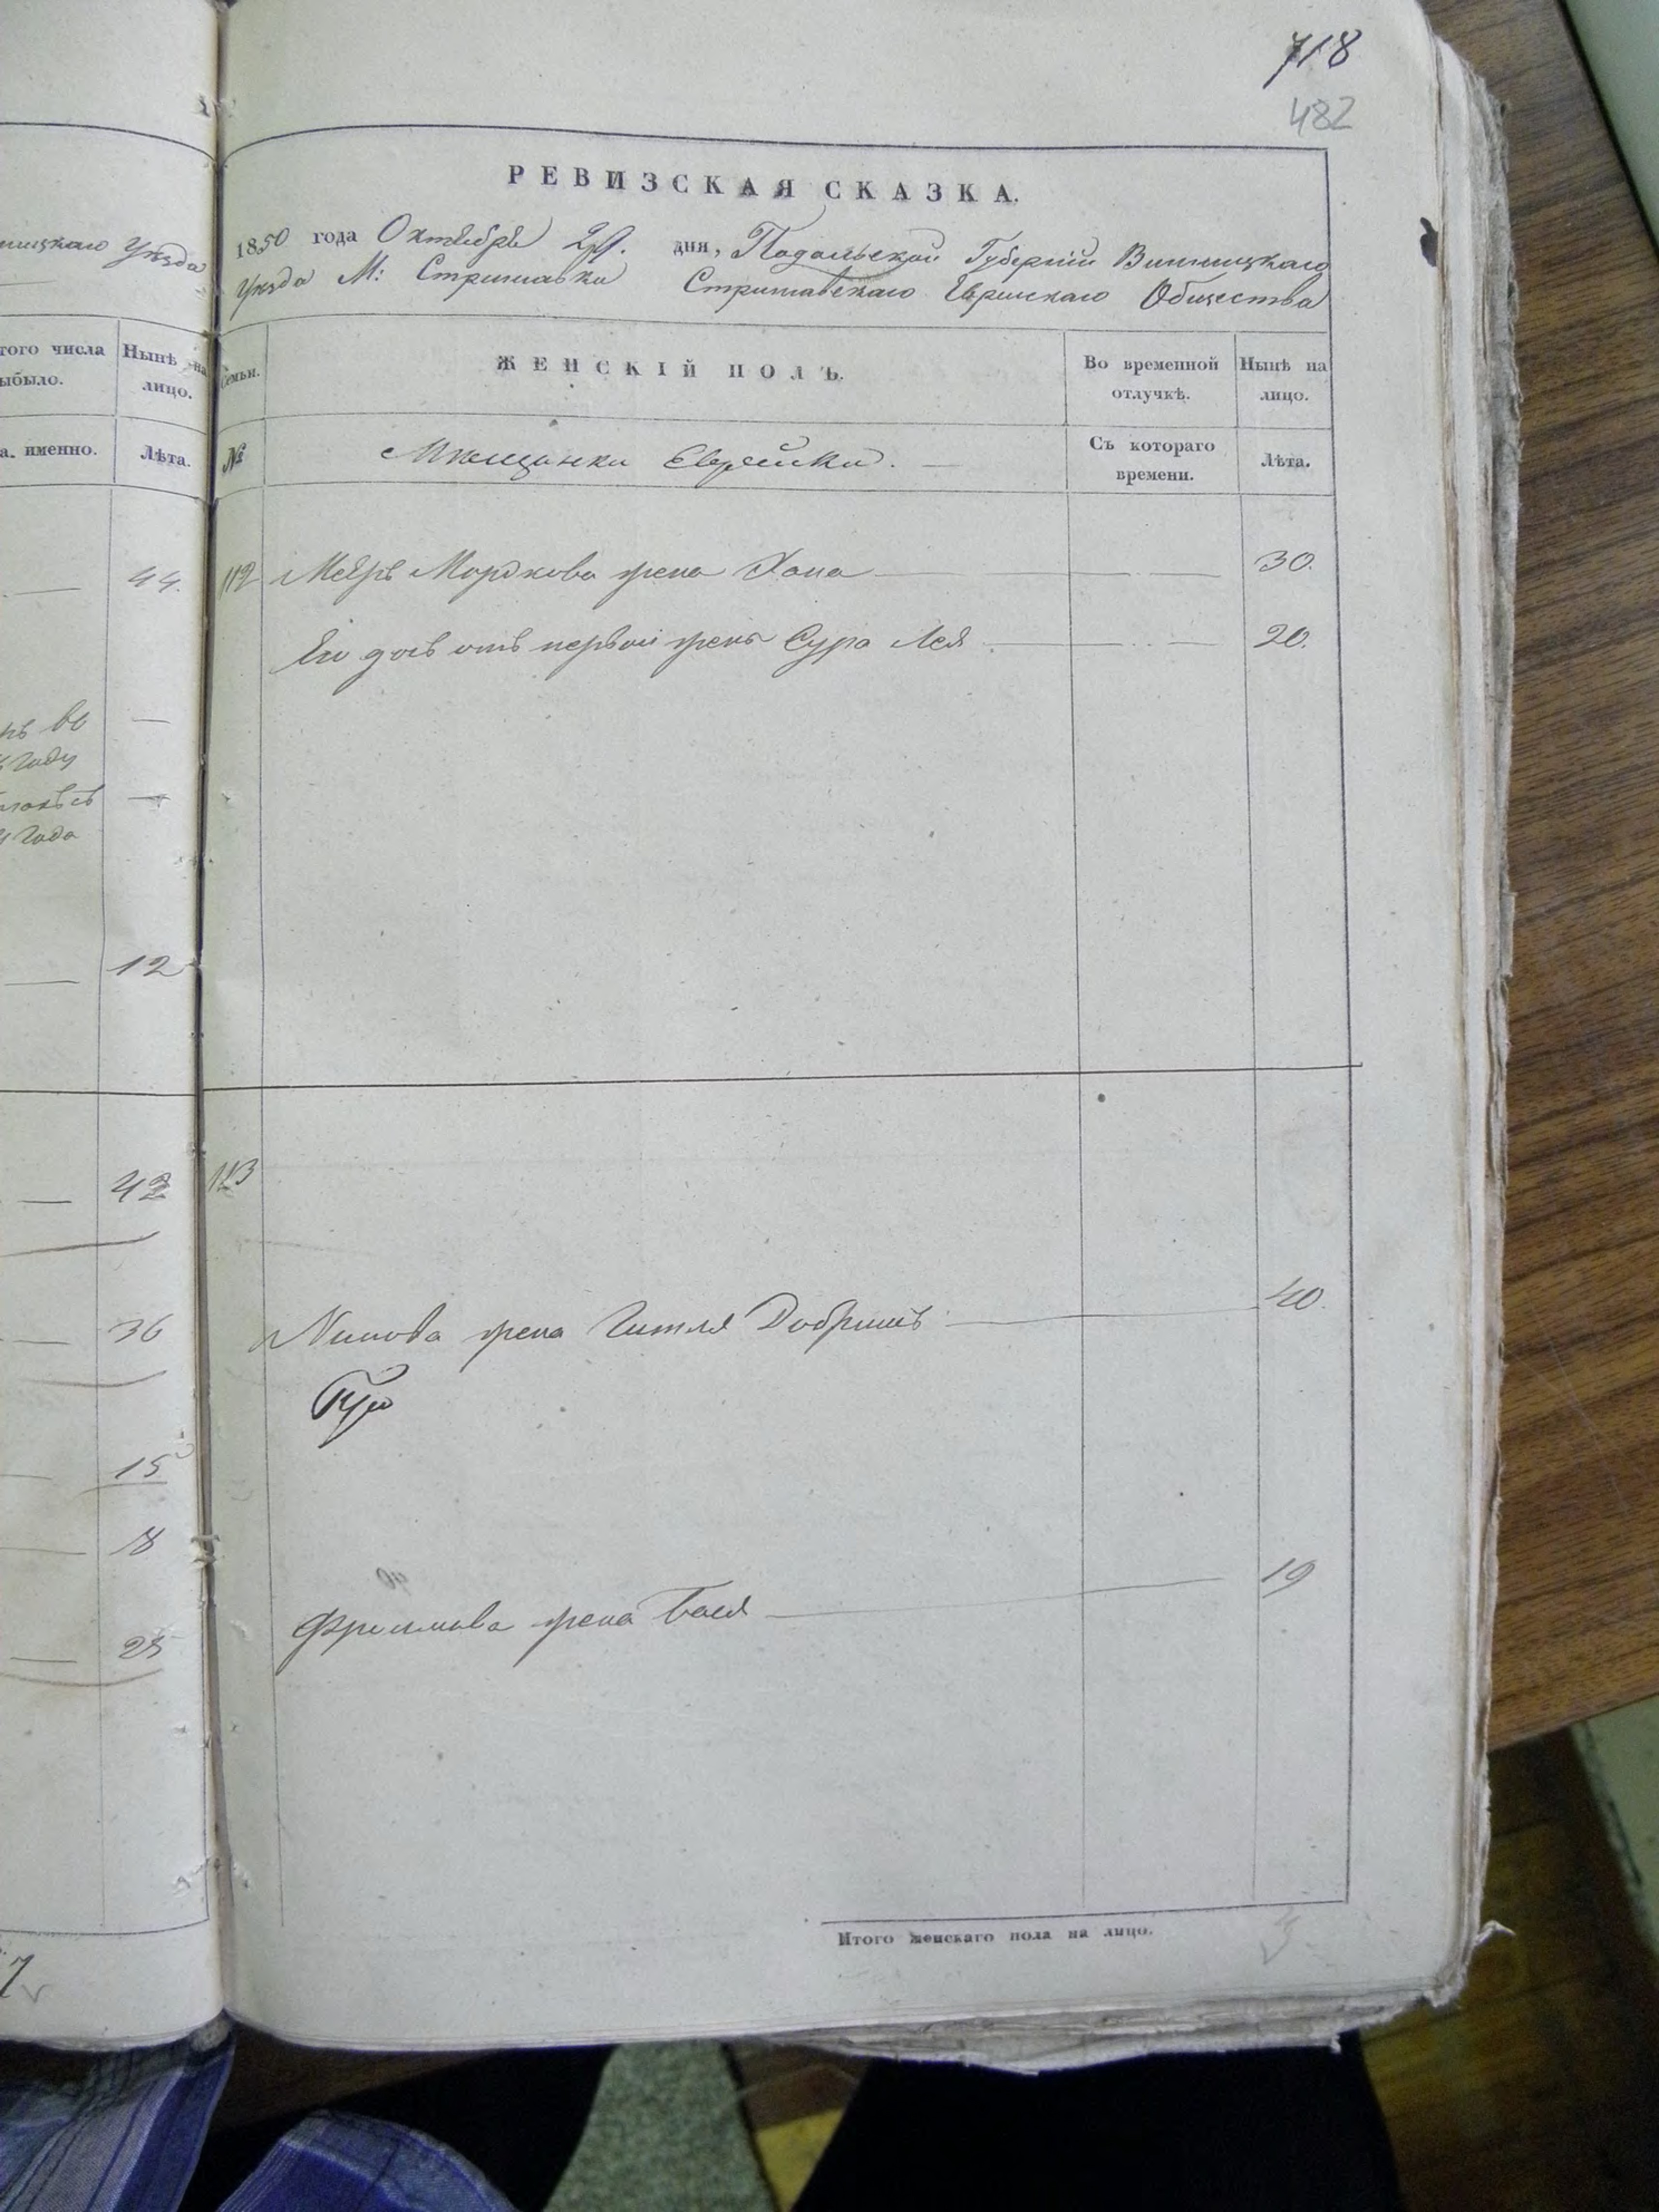 718
482
РЕВИЗСКАЯ СКАЗКА.
1850 года Октября 29. дня, Подольской Губернии Винницкаго
Уѣзда М: Стрижавки Стрижавскаго Еврейскаго Общества
ницкаго Уѣзда
того числа
ыбыло.
Нынѣ на
лицо.
Семьи.
ЖЕНСКІЙ ПОЛЪ.
Во временной
отлучкѣ.
Нынѣ на
лицо.
а. именно.
Лѣта.
№
Мѣщанки Еврейки.
Съ котораго
времени.
Лѣта.
44. 112 Меера Мордкова жена Хана 30.
Его дочь отъ первой жены Сура Лея 20.
во
году
года
12
42 113
36
жена Гитля Добришъ 40.
15
8
Фроимова жена Бася 19
25
Итого женскаго пола на лицо.
3
7